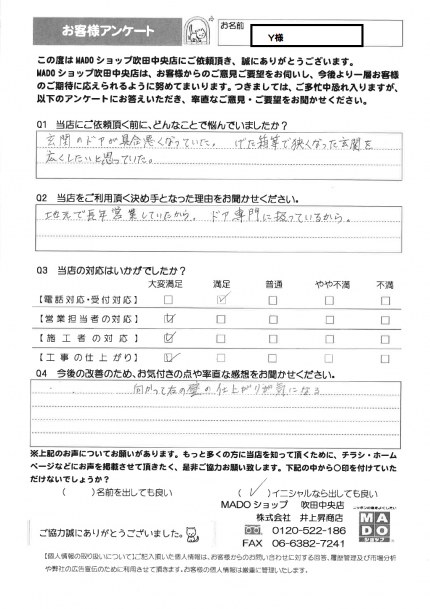 お客様アンケート
お名前
Y様
この度はMADOショップ吹田中央店にご依頼頂き、誠にありがとうございます。
MADOショップ吹田中央店は、お客様からのご意見ご要望をお伺いし、今後より一層お客様
のご期待に応えられるように努めてまいります。つきましては、ご多忙中恐れ入りますが、
以下のアンケートにお答えいただき、率直なご意見・ご要望をお聞かせください。
Q1 当店にご依頼頂く前に、どんなことで悩んでいましたか?
玄関のドアが具合悪くなっていた。 げた箱等で狭くなった玄関を
広くしたいと思っていた。
Q2 当店をご利用頂く決め手となった理由をお聞かせください。
地元で長年営業していたから。 ドア専門に扱っているから。
Q3 当店の対応はいかがでしたか?
大変満足 満足 普通 やや不満 不満
【電話対応・受付対応】 □ ☑ □ □ □
【営業担当者の対応】 ☑ □ □ □ □
【施工者の対応】 ☑ □ □ □ □
【工事の仕上がり】 ☑ □ □ □ □
Q4 今後の改善のため、お気付きの点や率直な感想をお聞かせください。
向かって右の壁の仕上がりが気になる
※上記のお声についてお願いがあります。もっと多くの方に当店を知って頂くために、チラシ・ホーム
ページなどにお声を掲載させて頂きたく、是非ご協力お願い致します。下記の中から○印を付けていた
だけないでしょうか?
( )名前を出しても良い (✓)イニシャルなら出しても良い
MADOショップ 吹田中央店
株式会社 井上昇商店
0120-522-186
FAX 06-6383-7241
MADO
ショップ
ご協力誠にありがとうございました。
【個人情報の取り扱いについて】ご記入頂いた個人情報は、お客様からのお問い合わせに対する回答、履歴管理及び市場分析
や弊社の広告宣伝のために利用させて頂きます。お客様の個人情報は厳重に管理いたします。